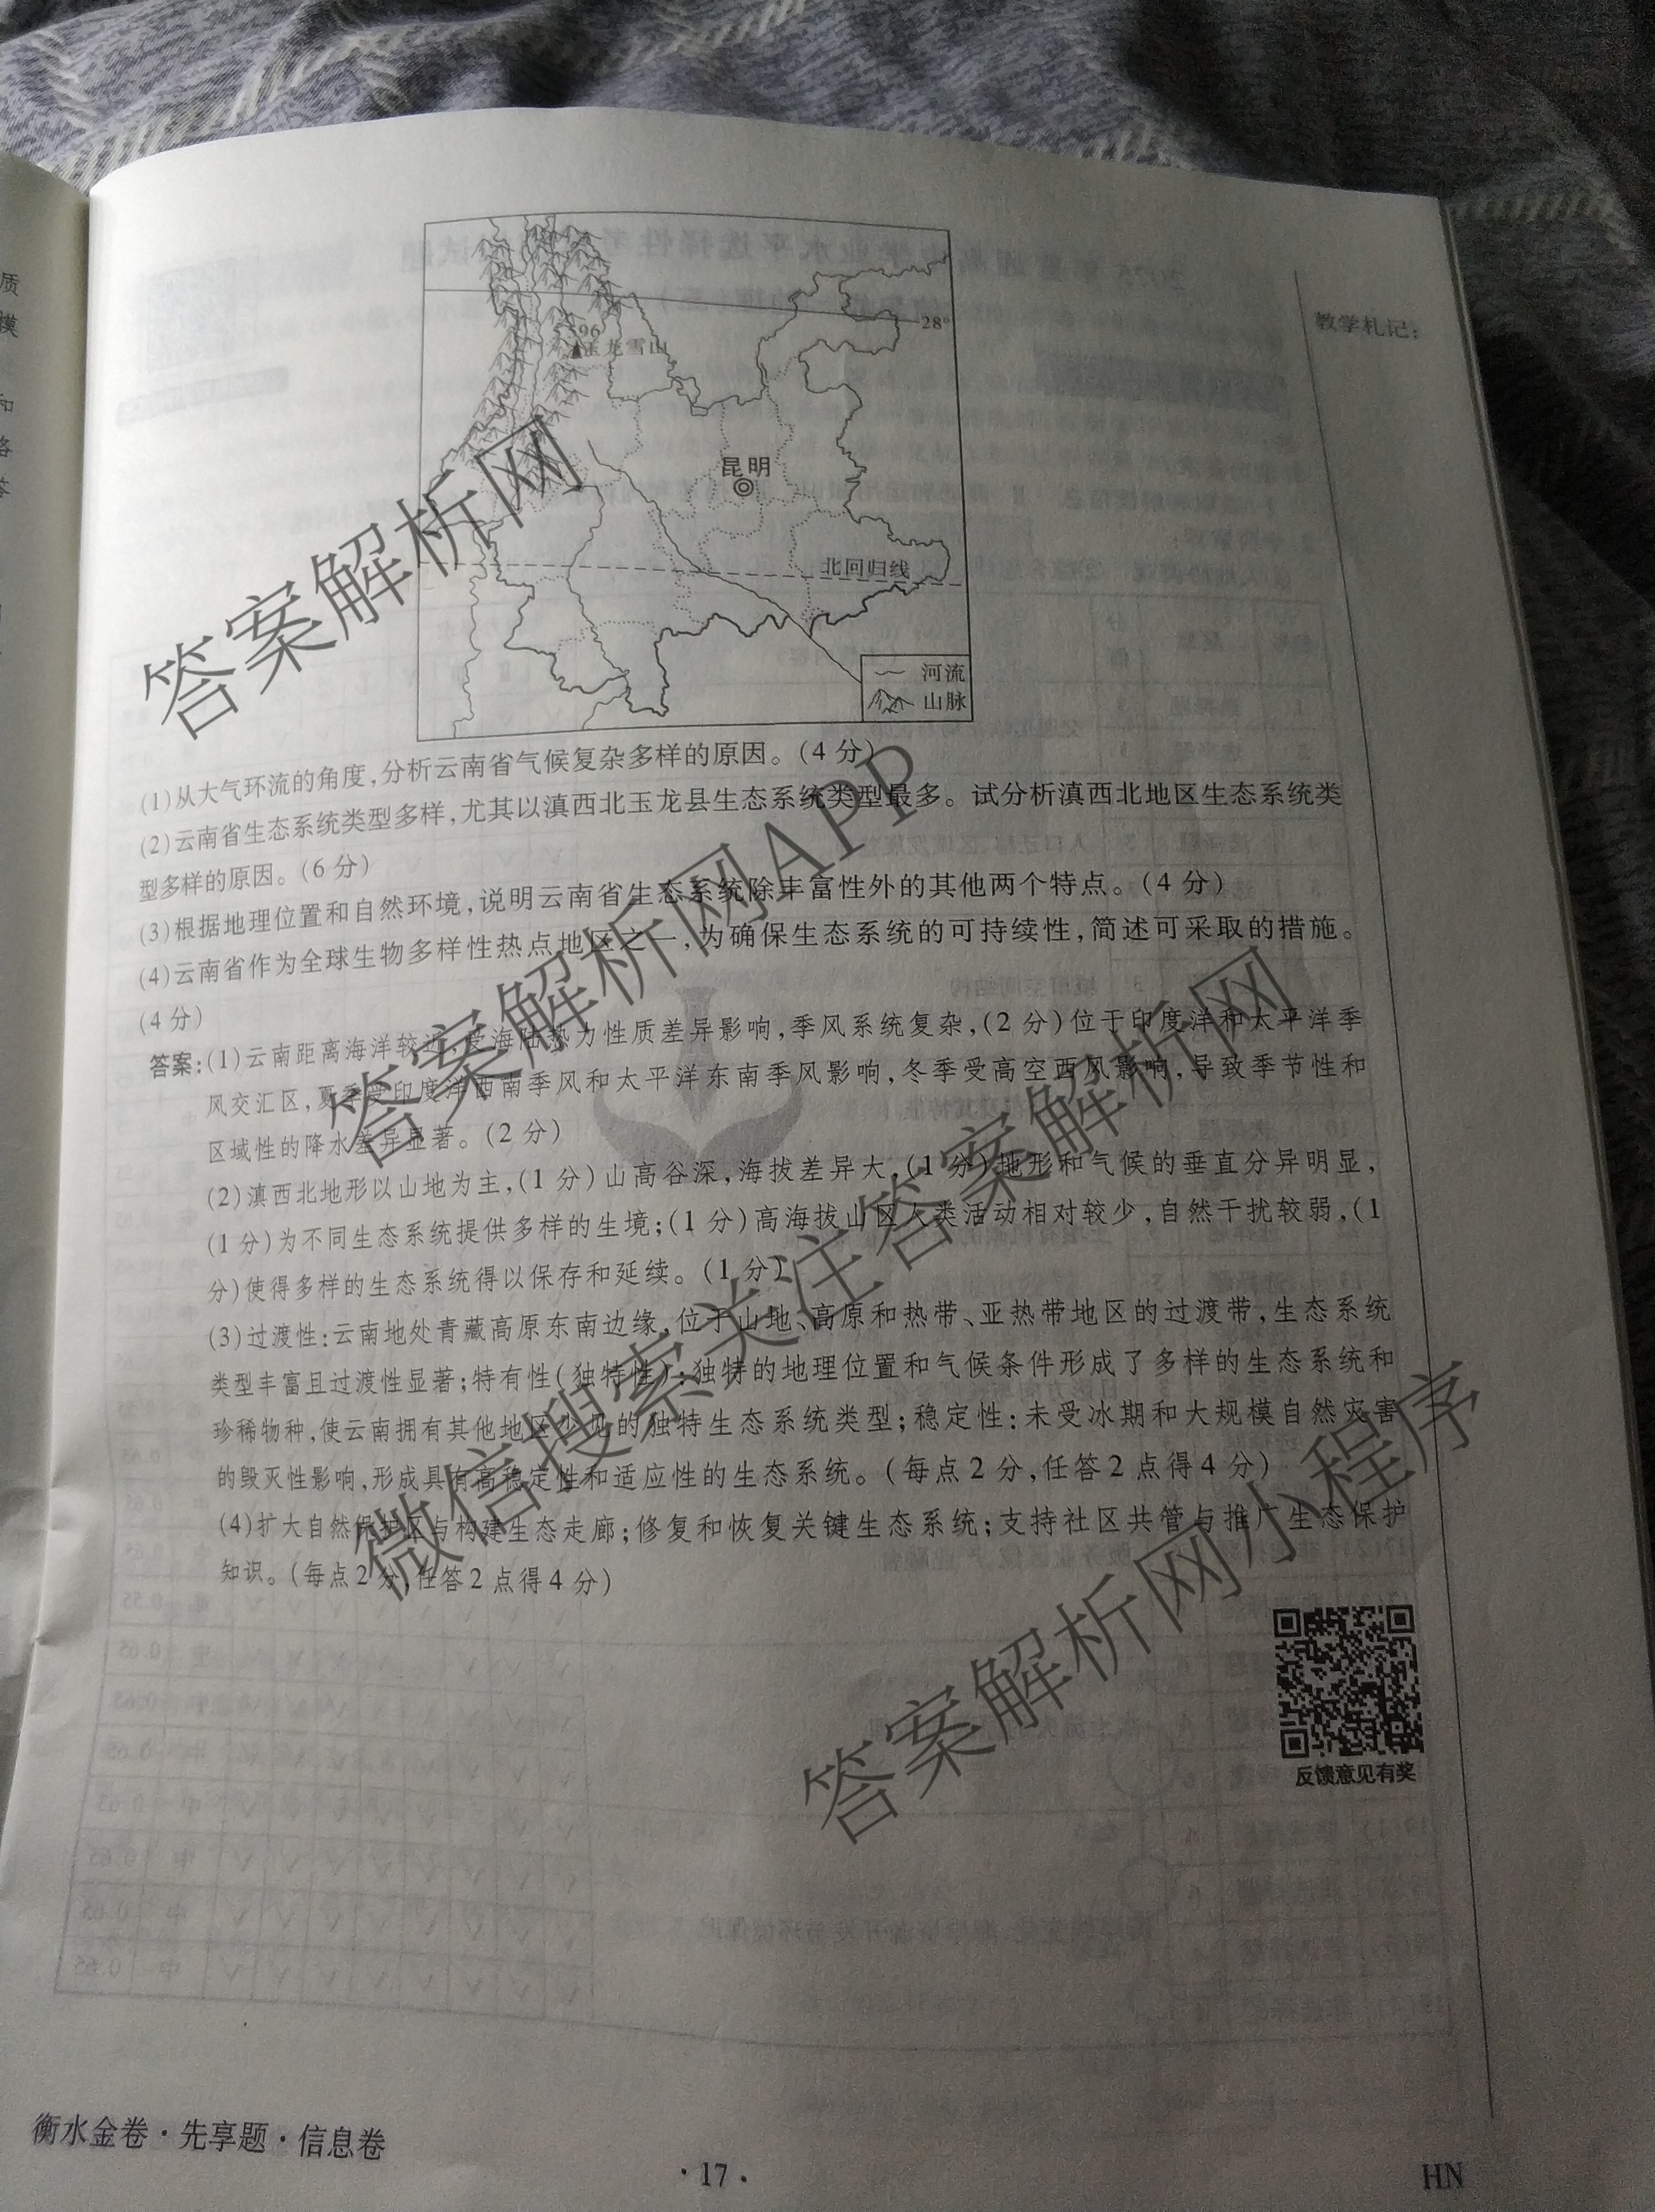 质
模
和
洛
答
教学札记:
28°
5 596
玉龙雪山
昆明
北回归线
河流
山脉
(1)从大气环流的角度,分析云南省气候复杂多样的原因。(4 分)
(2)云南省生态系统类型多样,尤其以滇西北玉龙县生态系统类型最多。试分析滇西北地区生态系统类
型多样的原因。(6 分)
(3)根据地理位置和自然环境,说明云南省生态系统除丰富性外的其他两个特点。(4 分)
(4)云南省作为全球生物多样性热点地区之一,为确保生态系统的可持续性,简述可采取的措施。
(4 分)
答案:(1)云南距离海洋较近,受海陆热力性质差异影响,季风系统复杂,(2 分)位于印度洋和太平洋季
风交汇区,夏季受印度洋西南季风和太平洋东南季风影响,冬季受高空西风影响,导致季节性和
区域性的降水差异显著。(2 分)
(2)滇西北地形以山地为主,(1 分)山高谷深,海拔差异大,(1 分)地形和气候的垂直分异明显,
(1 分)为不同生态系统提供多样的生境;(1 分)高海拔山区人类活动相对较少,自然干扰较弱,(1
分)使得多样的生态系统得以保存和延续。(1 分)
(3)过渡性:云南地处青藏高原东南边缘,位于山地、高原和热带、亚热带地区的过渡带,生态系统
类型丰富且过渡性显著;特有性(独特性):独特的地理位置和气候条件形成了多样的生态系统和
珍稀物种,使云南拥有其他地区少见的独特生态系统类型;稳定性:未受冰期和大规模自然灾害
的毁灭性影响,形成具有高稳定性和适应性的生态系统。(每点2 分,任答2 点得4 分)
(4)扩大自然保护区与构建生态走廊;修复和恢复关键生态系统;支持社区共管与推广生态保护
知识。(每点2 分,任答2 点得4 分)
反馈意见有奖
衡水金卷·先享题·信息卷
·17·
HN
答案解析网
答案解析网APP
微信搜索关注答案解析网
答案解析网小程序